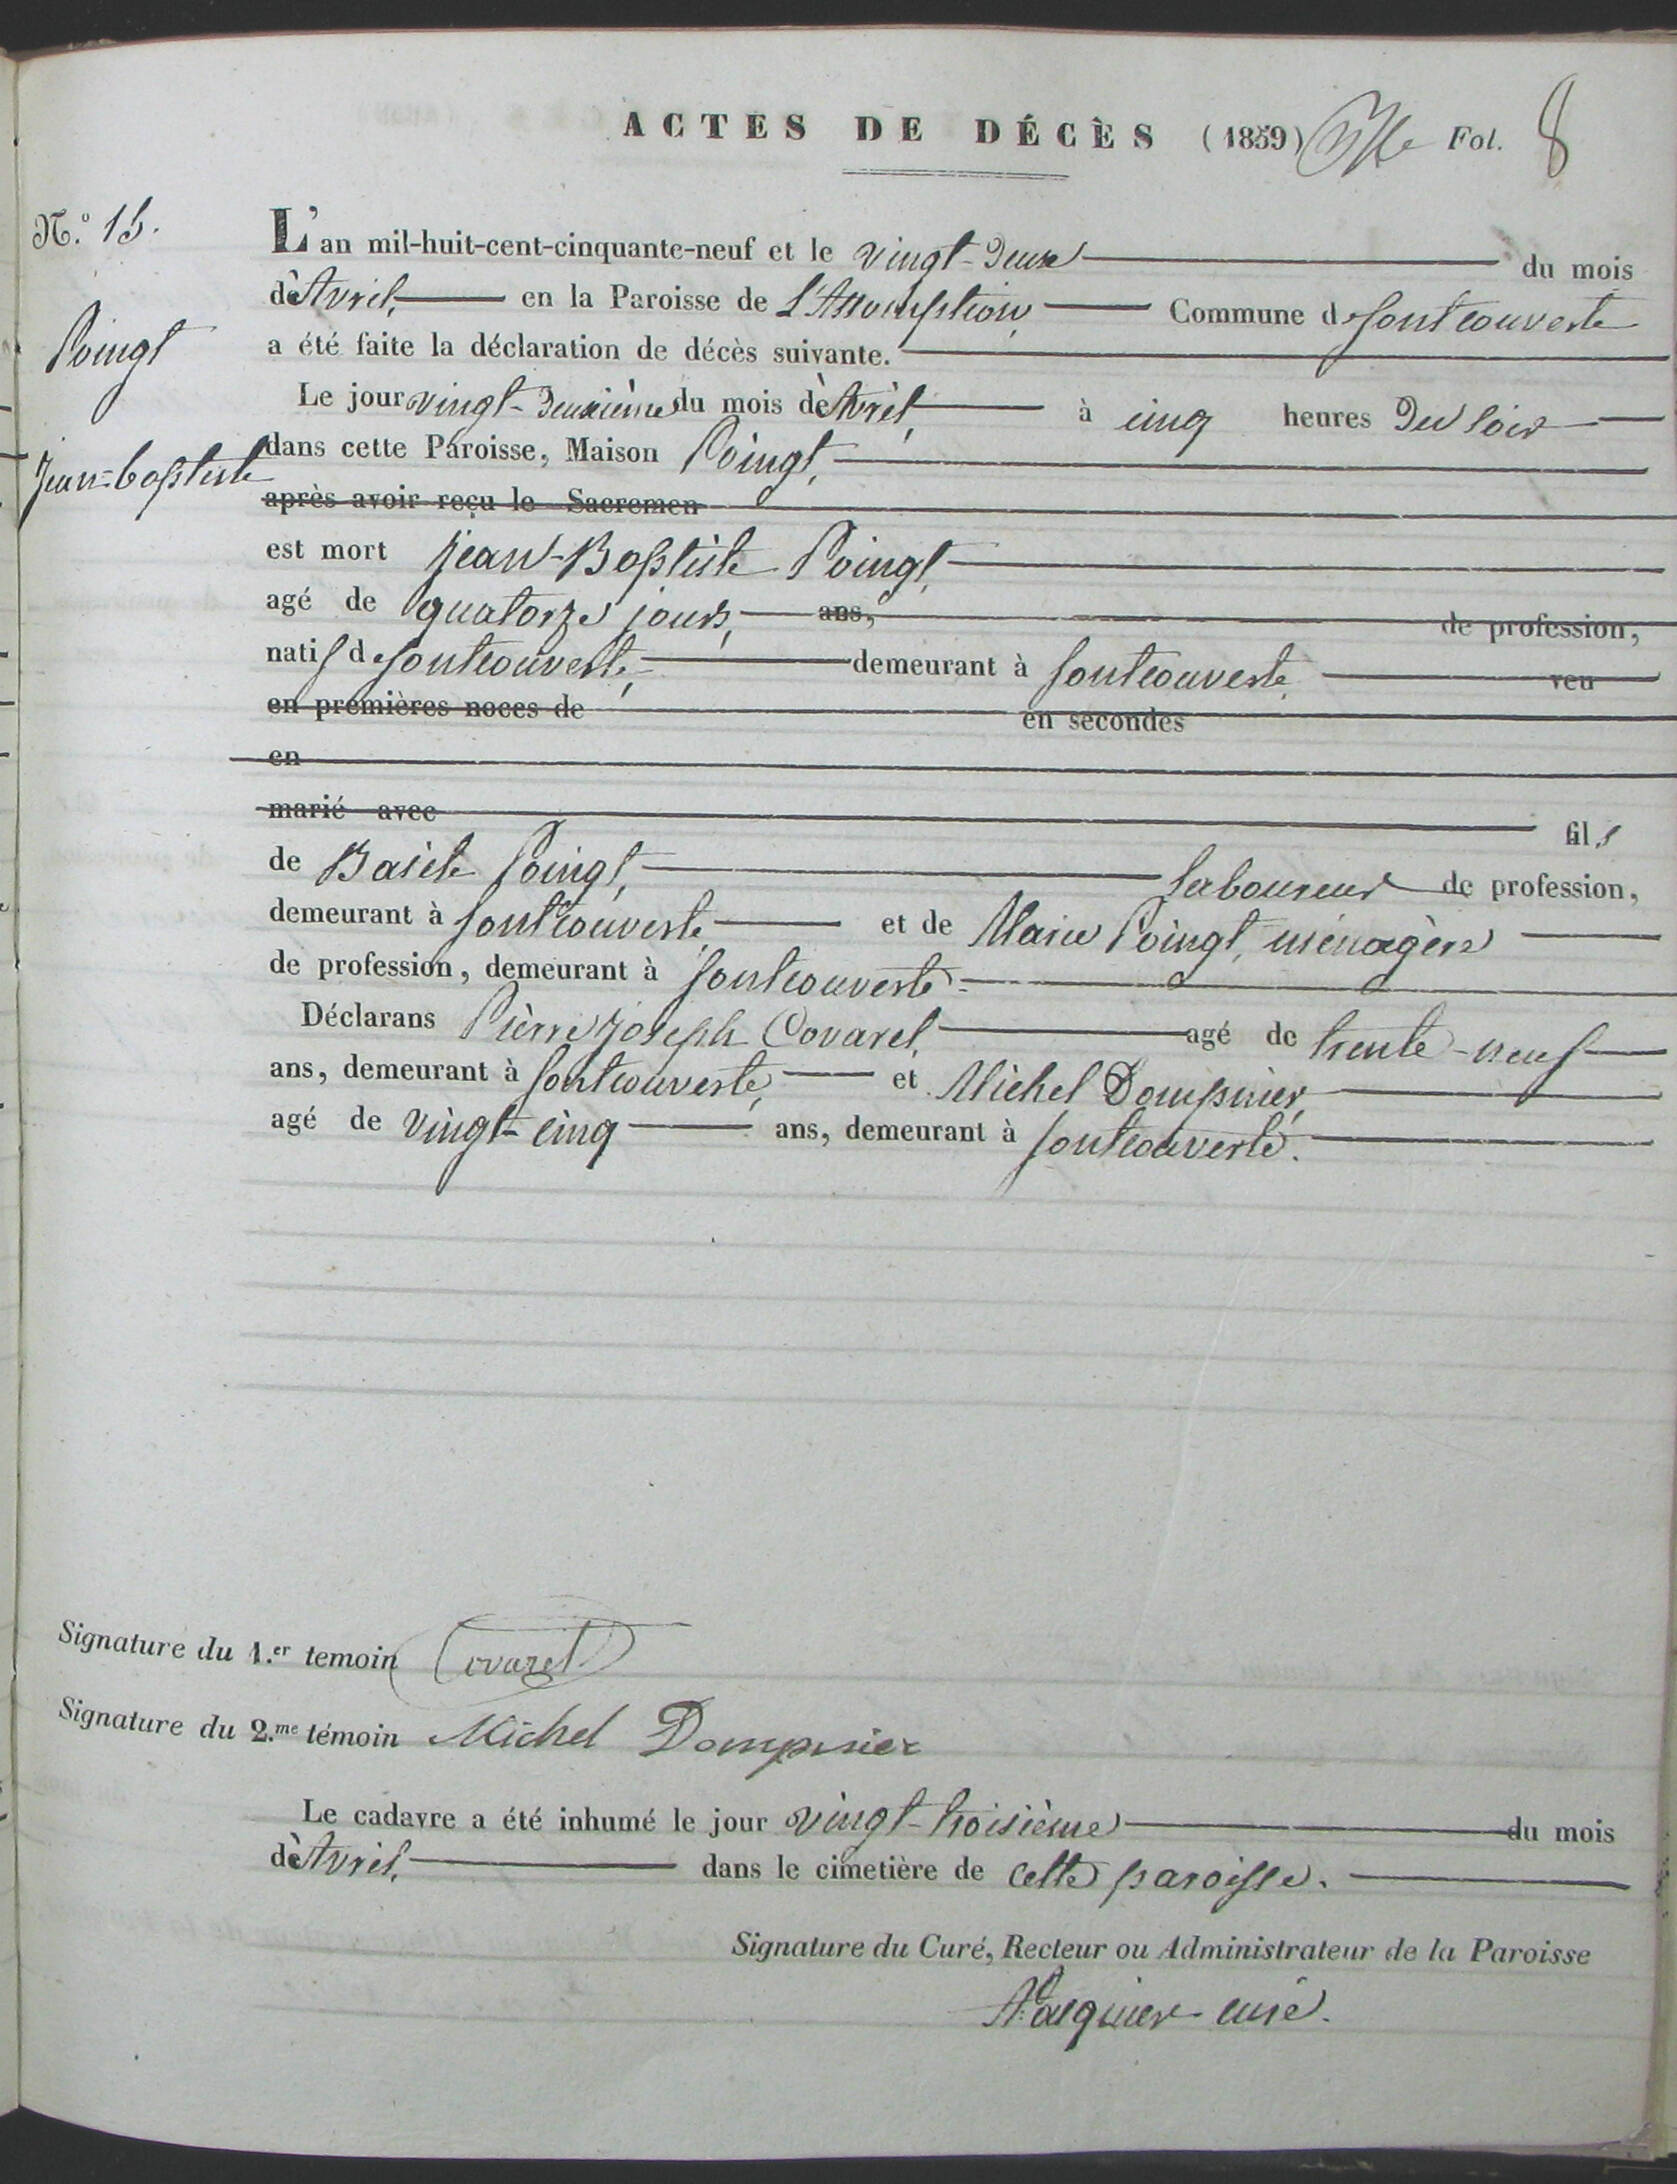 ACTES DE DÉCÈS (1859) Fol. 8
N.º 15.
L'an mil-huit-cent-cinquante-neuf et le vingt-deux du mois
d'Avril, en la Paroisse de L'Assomption, Commune de fontcouverte
Poingt
a été faite la déclaration de décès suivante.
Le jour vingt-deuxième du mois d'Avril, à cinq heures du soir
Jean-baptiste
dans cette Paroisse, Maison Poingt,
après avoir reçu le Sacremen
est mort Jean-Baptiste Poingt,
agé de quatorze jours, ans, de profession,
natif de fontcouverte, demeurant à fontcouverte, veu
en premières noces de en secondes
en
marié avec fils
de Basile Poingt, laboureur de profession,
demeurant à fontcouverte, et de Marie Poingt, ménagère
de profession, demeurant à fontcouverte.
Déclarans Pierre Joseph Covarel, agé de trente-neuf
ans, demeurant à fontcouverte, et Michel Dompnier,
agé de vingt-cinq ans, demeurant à fontcouverte.
Signature du 1.er temoin Covarel
Signature du 2.me témoin Michel Dompnier
Le cadavre a été inhumé le jour vingt-troisième du mois
d'Avril, dans le cimetière de cette paroisse.
Signature du Curé, Recteur ou Administrateur de la Paroisse
curé.